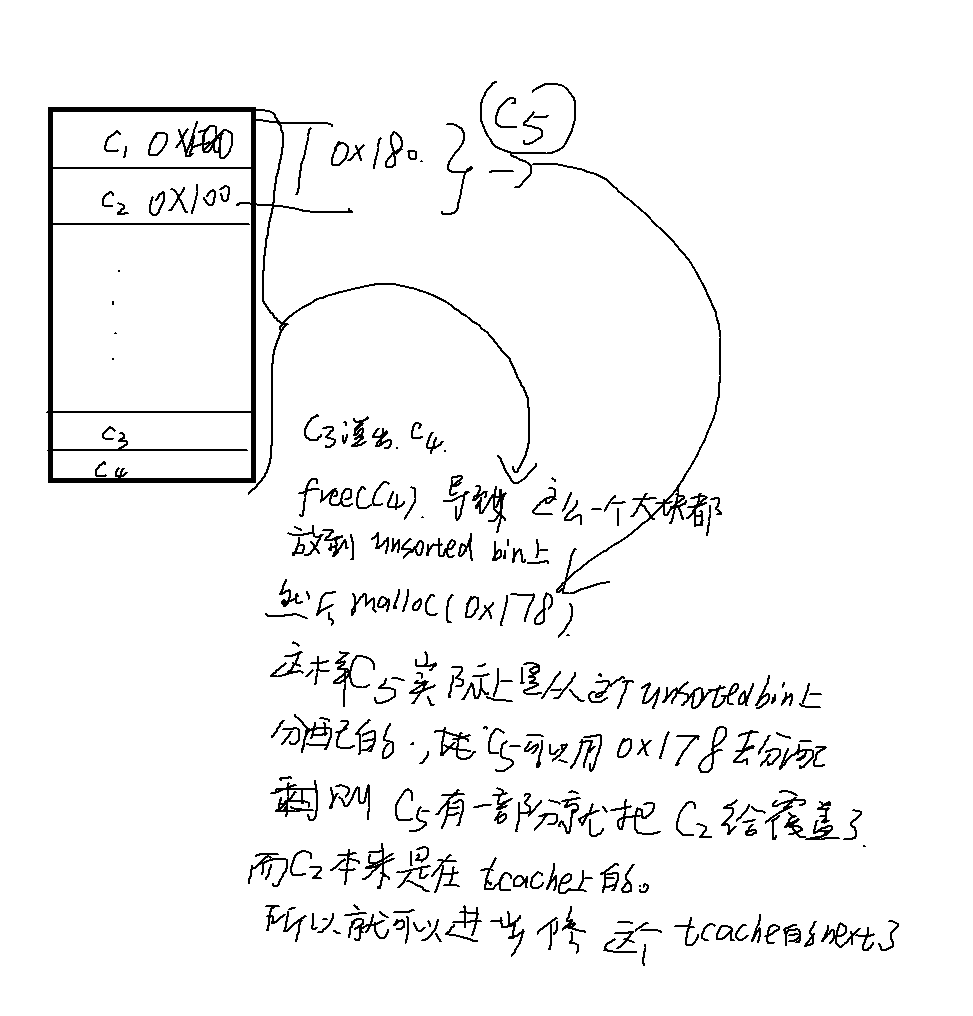 C5
C1 0X100
0X180.
C2 0X100
C3
C4
C3溢出 C4.
free(C4). 导致 这么一个大块都
放到 unsorted bin上
然后 malloc(0X178)
这样C5实际上是从这个unsortedbin上
分配的., C5可以用 0X178去分配
则 C5有一部分就把 C2给覆盖了.
而C2本来是在 tcache上的。
所以就可以进步修 这个 tcache的next了